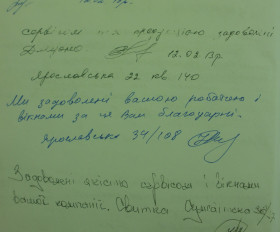 сервісом та продукцією задоволені
12.02.13р.
Ярославська 22 кв 140
Ми задоволені вашою роботою і
вікнами за що Вам благодарні.
Ярославська 34/108
Задоволені якістю сервісом і вікнами
вашої компанії.